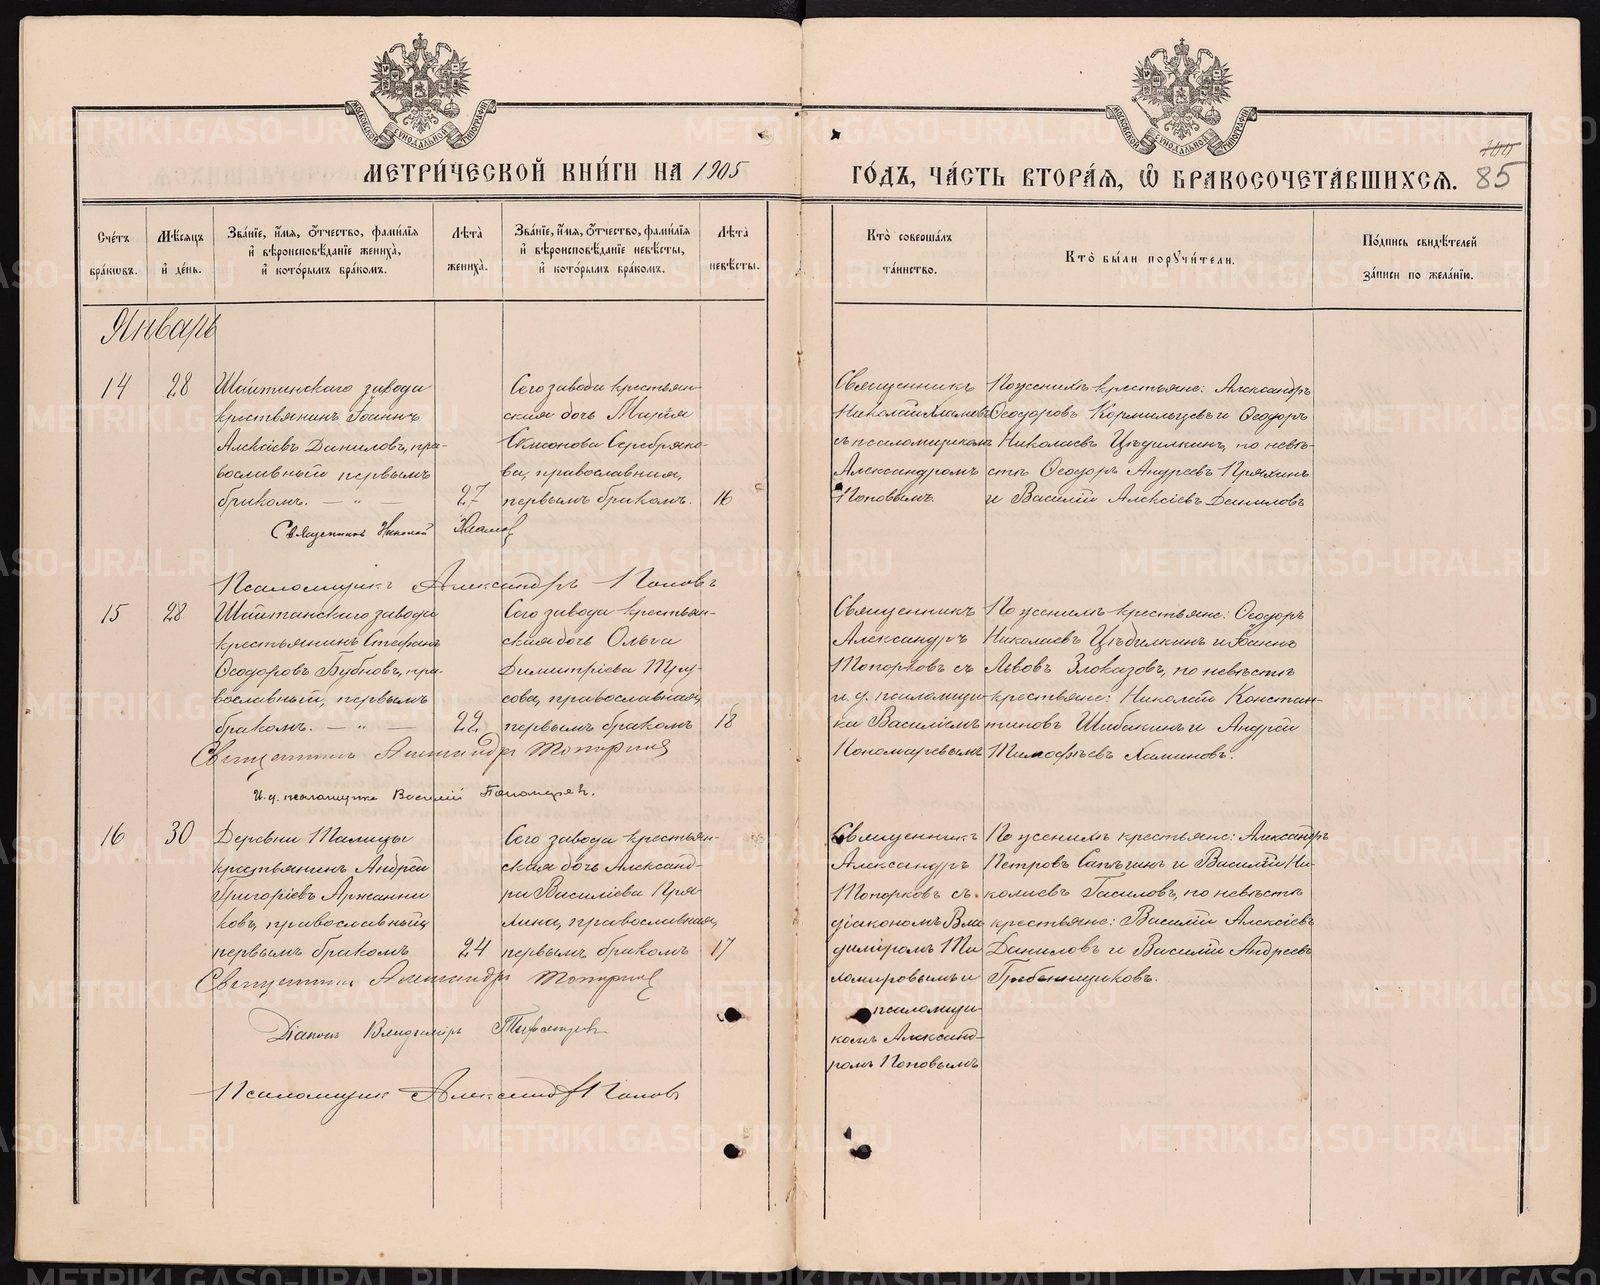 МЕТРИ́ЧЕСКОЙ КНИ́ГИ НА 1905
ГО́ДЪ, ЧА́СТЬ ВТОРА́Я, Ѡ БРАКОСОЧЕТА́ВШИХСЯ.
100
85
МОСКОВСКОЙ СѴНОДАЛЬНОЙ ТИПОГРАФІИ
МОСКОВСКОЙ СѴНОДАЛЬНОЙ ТИПОГРАФІИ
Сче́тъ
бра́кѡвъ.
Мѣ́сяцъ
и҆ де́нь.
Зва́нїе, и҆́мя, ѻ҆́тчество, фами́лїя
и҆ вѣроисповѣ́данїе жениха̀,
и҆ кото́рымъ бра́комъ.
Лѣ́та
жениха̀.
Зва́нїе, и҆́мя, ѻ҆́тчество, фами́лїя
и҆ вѣроисповѣ́данїе невѣ́сты,
и҆ кото́рымъ бра́комъ.
Лѣ́та
невѣ́сты.
Кто̀ соверша́лъ
та́инство.
Кто̀ бы́ли порꙋчи́тели.
По́дпись свидѣ́телей
за́писи по жела́нїю.
Январь
14
28
Шайтанскаго завода
крестьянинъ Іоаннъ
Алексіевъ Даниловъ, пра-
вославный первымъ
бракомъ. — „ —
27
Сего завода крестьян-
ская дочь Марія
Симонова Серебряко-
ва, православная,
первымъ бракомъ.
16
Священникъ
Николай Хламовъ
съ псаломщикомъ
Александромъ
Поповымъ.
По женихѣ крестьяне: Александръ
Ѳеодоровъ Кормильцевъ и Ѳеодоръ
Николаевъ Цѣдилкинъ, по невѣ-
стѣ Ѳеодоръ Андреевъ Пряхинъ
и Василій Алексіевъ Даниловъ
Священникъ Николай Хламов
Псаломщикъ Александръ Поповъ
15
28
Шайтанскаго завода
крестьянинъ Стефанъ
Ѳеодоровъ Бубновъ, пра-
вославный, первымъ
бракомъ. — „ —
22
Сего завода крестьян-
ская дочь Ольга
Димитріева Тру-
сова, православная,
первымъ бракомъ
18
Священникъ
Александръ
Топорковъ съ
и. д. псаломщи-
ка Василіемъ
Пономаревымъ
По женихѣ крестьяне: Ѳеодоръ
Николаевъ Цѣдилкинъ и Іоаннъ
Львовъ Злоказовъ, по невѣстѣ
крестьяне: Николай Констан-
тиновъ Шибакинъ и Андрей
Тимофѣевъ Халиновъ.
Священникъ Александръ Топорков
И. д. псаломщика Василій Пономарев.
16
30
Деревни Талицы
крестьянинъ Андрей
Григоріевъ Аржанни
ковъ, православный
первымъ бракомъ
24
Сего завода крестьян-
ская дочь Александ-
ра Василіева Пря-
лина, православная,
первымъ бракомъ
17
Священникъ
Александръ
Топорковъ съ
діакономъ Вла
диміромъ Ти
хомировымъ и
псаломщи-
комъ Александ-
ромъ Поповымъ
По женихѣ крестьяне: Александръ
Петровъ Сапѣгинъ и Василій Ни-
колаевъ Гасиловъ, по невѣстѣ
крестьяне: Василій Алексіевъ
Даниловъ и Василій Андреевъ
Гребенщиковъ.
Священникъ Александръ Топорков
Діаконъ Владиміръ Тихомиров
Псаломщик Александръ Поповъ
METRIKI.GASO-URAL.RU